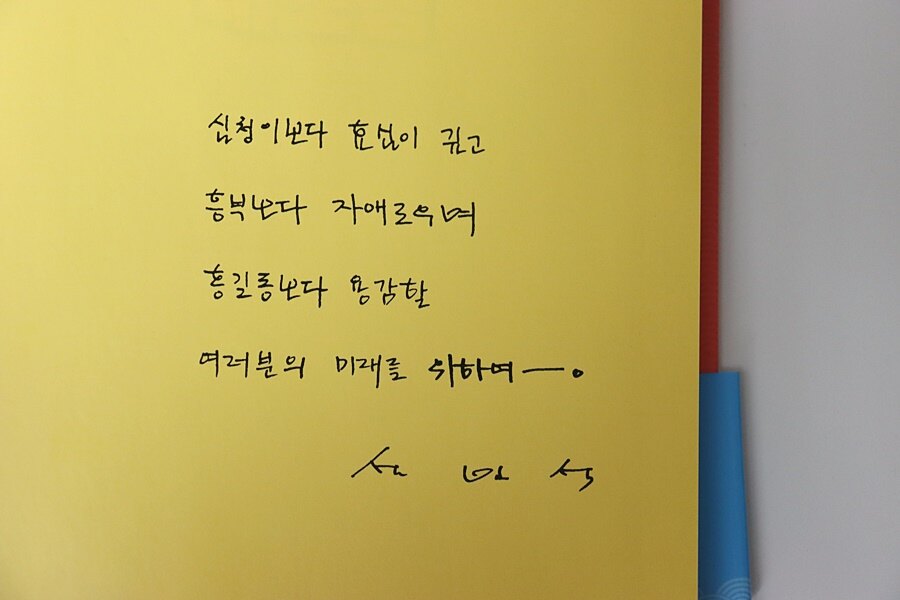 심청이보다 효심이 깊고
흥부보다 자애로우며
홍길동보다 용감할
여러분의 미래를 위하여—.